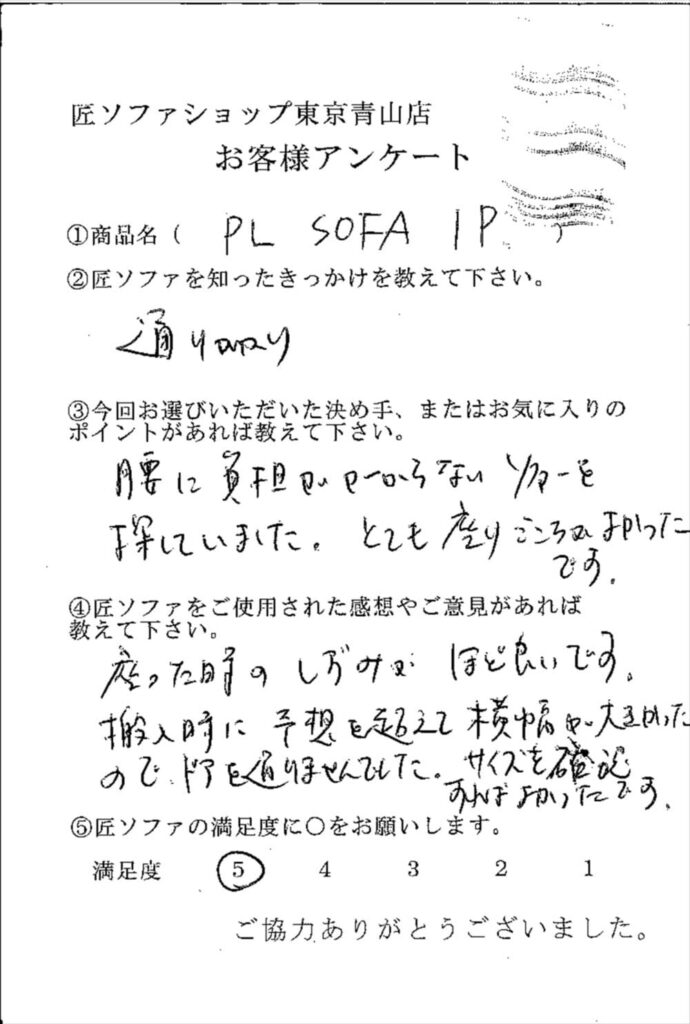 匠ソファショップ東京青山店
お客様アンケート
①商品名( PL SOFA 1P )
②匠ソファを知ったきっかけを教えて下さい。
通りがかり
③今回お選びいただいた決め手、またはお気に入りの
ポイントがあれば教えて下さい。
腰に負担がかからないソファーを
探していました。とても座りごこちがよかった
です。
④匠ソファをご使用された感想やご意見があれば
教えて下さい。
座った時のしずみがほど良いです。
搬入時に予想を超えて横幅が大きかった
ので、ドアを通りませんでした。サイズを確認
すればよかったです。
⑤匠ソファの満足度に○をお願いします。
満足度 5 4 3 2 1
ご協力ありがとうございました。